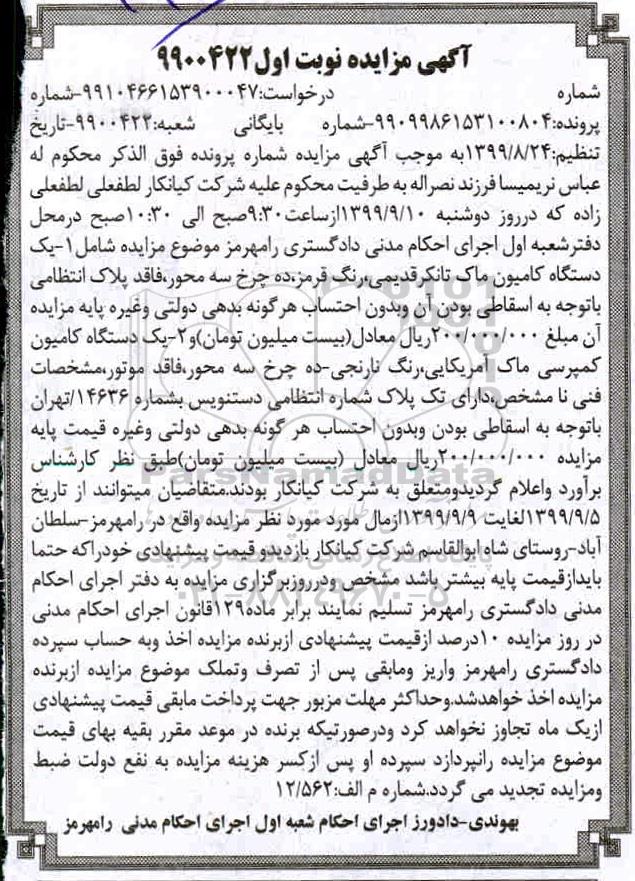 آگهی مزایده نوبت اول ۹۹۰۰۴۲۲
شماره درخواست:۹۹۱۰۴۶۶۱۵۳۹۰۰۰۴۷-شماره
پرونده:۹۹۰۹۹۸۶۱۵۳۱۰۰۸۰۴-شماره بایگانی شعبه:۹۹۰۰۴۲۲-تاریخ
تنظیم:۱۳۹۹/۸/۲۴به موجب آگهی مزایده شماره پرونده فوق الذکر محکوم له
عباس نریمیسا فرزند نصراله به طرفیت محکوم علیه شرکت کیانکار لطفعلی لطفعلی
زاده که درروز دوشنبه ۱۳۹۹/۹/۱۰ازساعت۹:۳۰صبح الی ۱۰:۳۰صبح درمحل
دفترشعبه اول اجرای احکام مدنی دادگستری رامهرمز موضوع مزایده شامل۱-یک
دستگاه کامیون ماک تانکرقدیمی،رنگ قرمز،ده چرخ سه محور،فاقد پلاک انتظامی
باتوجه به اسقاطی بودن آن وبدون احتساب هرگونه بدهی دولتی وغیره پایه مزایده
آن مبلغ ۲۰۰/۰۰۰/۰۰۰ریال معادل(بیست میلیون تومان)و۲-یک دستگاه کامیون
کمپرسی ماک آمریکایی،رنگ نارنجی-ده چرخ سه محور،فاقد موتور،مشخصات
فنی نا مشخص،دارای تک پلاک شماره انتظامی دستنویس بشماره ۱۴۶۳۶/تهران
باتوجه به اسقاطی بودن وبدون احتساب هر گونه بدهی دولتی وغیره قیمت پایه
مزایده ۲۰۰/۰۰۰/۰۰۰ریال معادل (بیست میلیون تومان)طبق نظر کارشناس
برآورد واعلام گردیدومتعلق به شرکت کیانکار بودند.متقاضیان میتوانند از تاریخ
۱۳۹۹/۹/۵لغایت ۱۳۹۹/۹/۹ازمال مورد مورد نظر مزایده واقع در رامهرمز-سلطان
آباد-روستای شاه ابوالقاسم شرکت کیانکار بازدیدو قیمت پیشنهادی خودراکه حتما
بایدازقیمت پایه بیشتر باشد مشخص ودرروزبرگزاری مزایده به دفتر اجرای احکام
مدنی دادگستری رامهرمز تسلیم نمایند برابر ماده۱۲۹قانون اجرای احکام مدنی
در روز مزایده ۱۰درصد ازقیمت پیشنهادی ازبرنده مزایده اخذ وبه حساب سپرده
دادگستری رامهرمز واریز ومابقی پس از تصرف وتملک موضوع مزایده ازبرنده
مزایده اخذ خواهدشد.وحداکثر مهلت مزبور جهت پرداخت مابقی قیمت پیشنهادی
ازیک ماه تجاوز نخواهد کرد ودرصورتیکه برنده در موعد مقرر بقیه بهای قیمت
موضوع مزایده رانپردازد سپرده او پس ازکسر هزینه مزایده به نفع دولت ضبط
ومزایده تجدید می گردد.شماره م الف:۱۲/۵۶۲
بهوندی-دادورز اجرای احکام شعبه اول اجرای احکام مدنی رامهرمز
ParsNamadData
۰۲۱-۸۸۳۴۹۶۷۰-۵